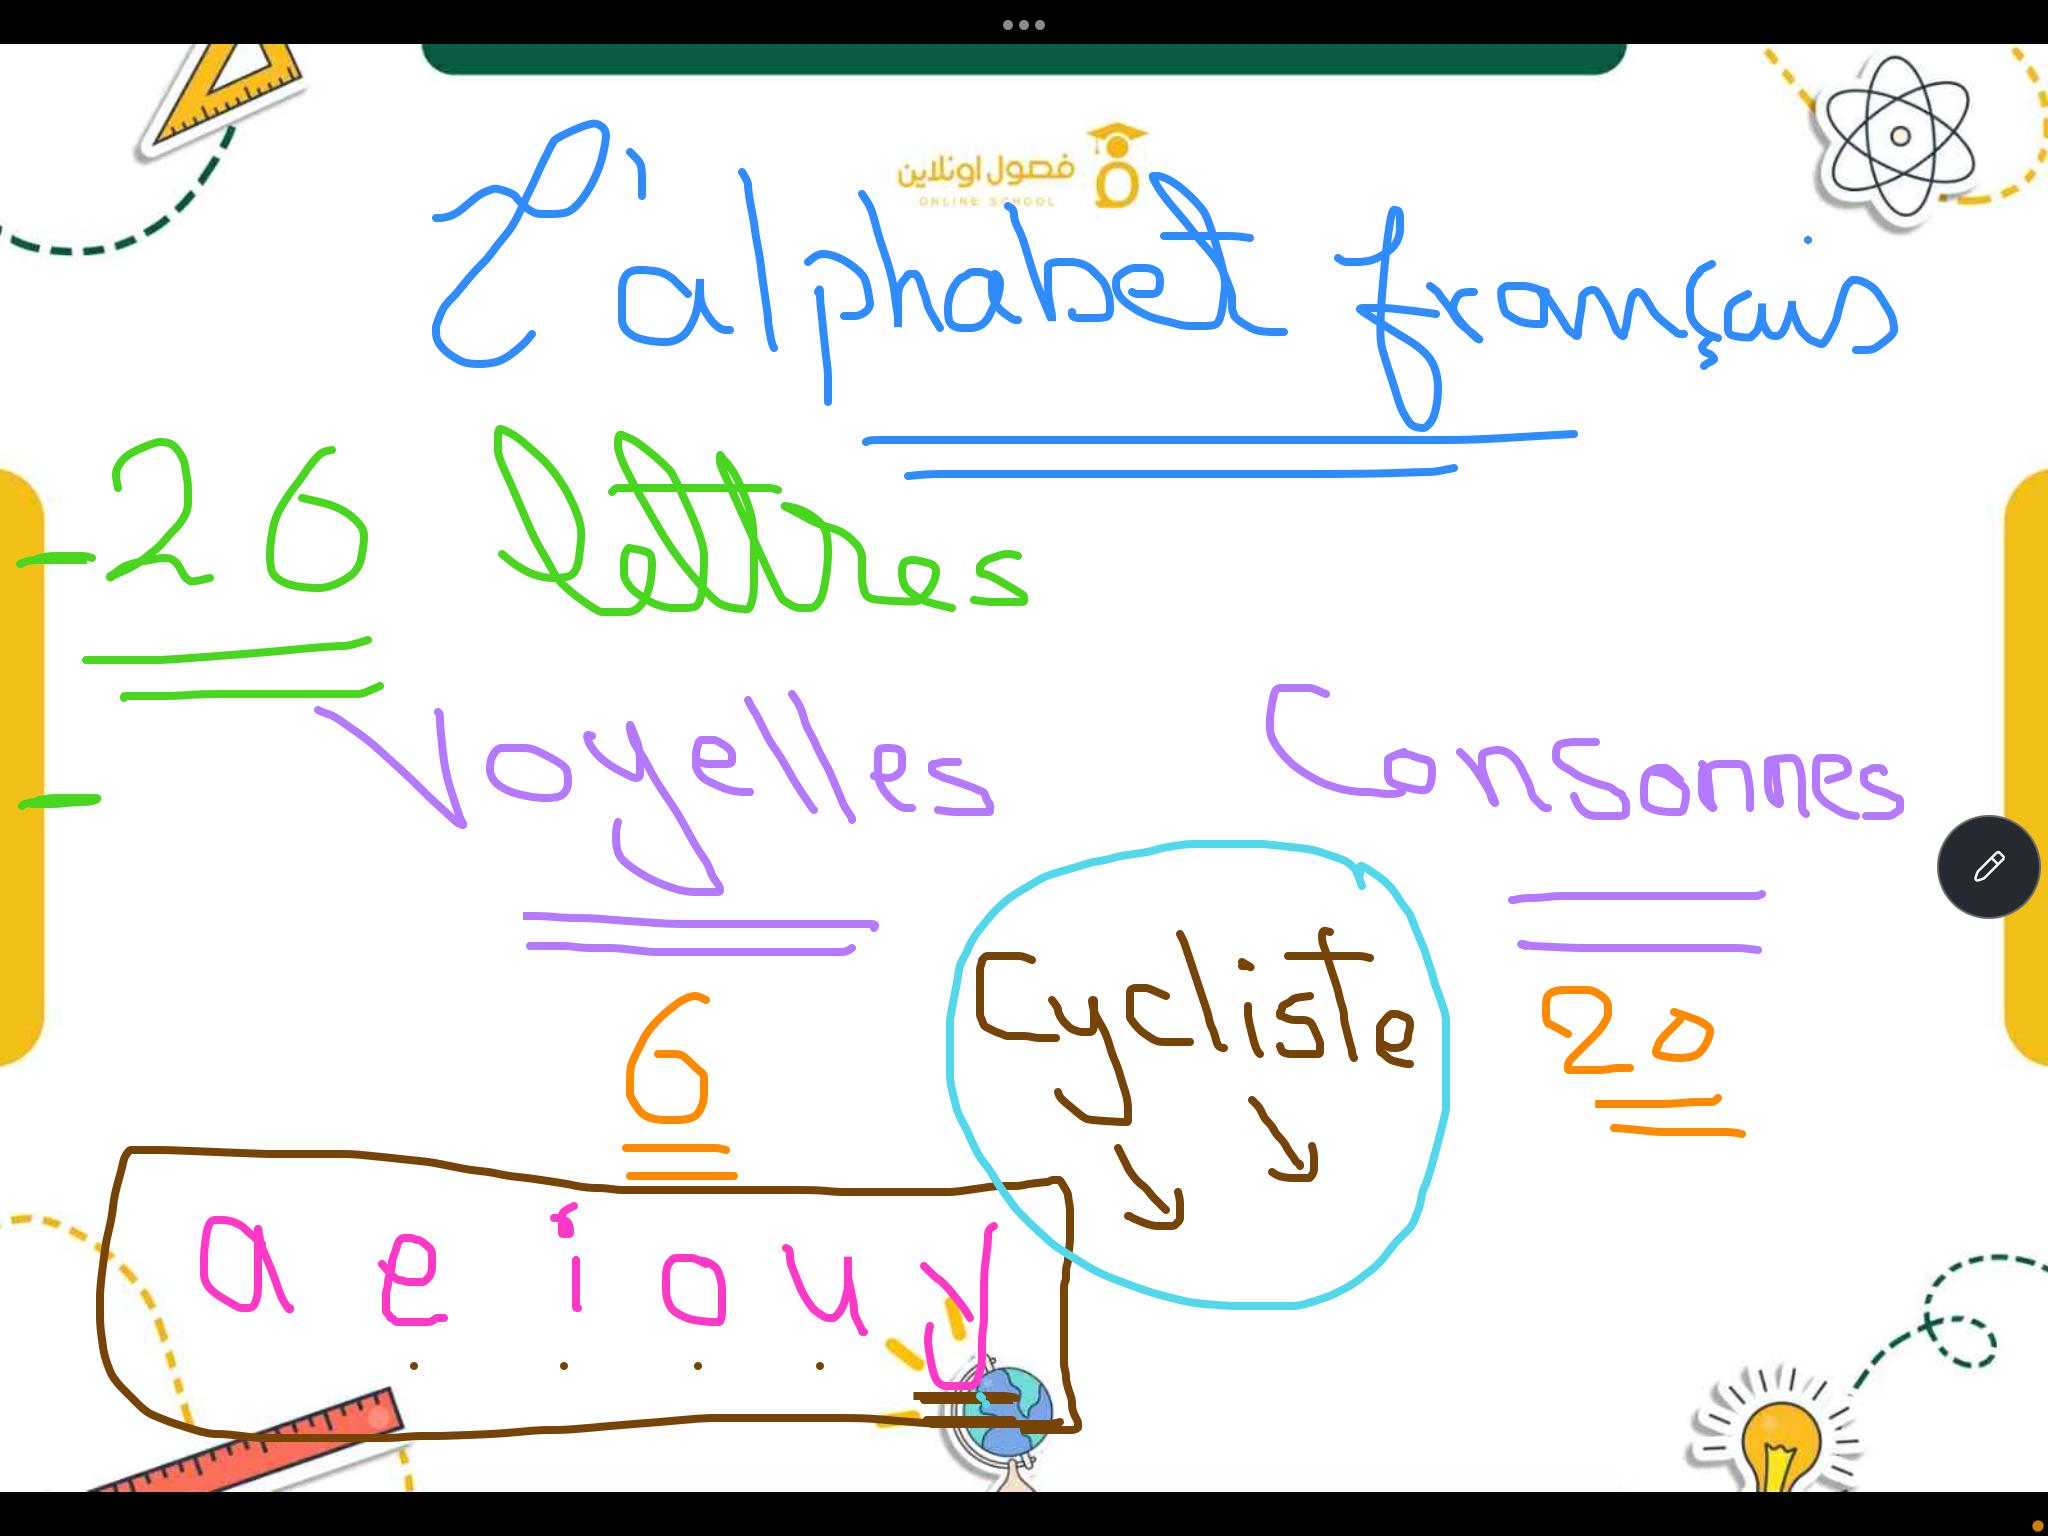 فصول اونلاين
ONLINE SCHOOL
L'alphabet français
- 26 lettres
- Voyelles Consonnes
6 Cycliste 20
a e i o u y